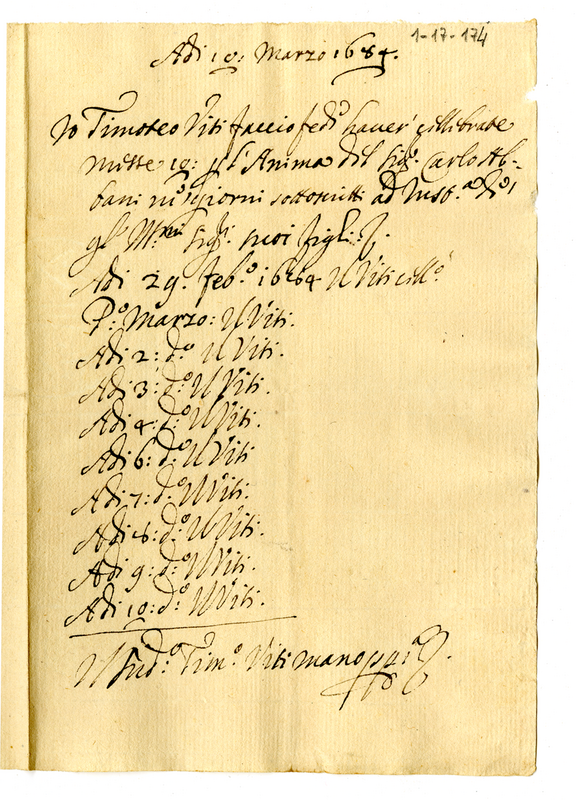 1-17-174
Adi 10: Marzo 1684.
Io Timoteo Viti faccio fede haver cellebrate
Messe 10: p l'Anima del Sig.r Carlo Al-
bani ne giorni sottoscritti ad
gl' Sig.ri suoi figli:
Adi 29. feb.o 1684 Il Viti cell.o
P.o Marzo: Il Viti.
Adi 2: d.o Il Viti.
Adi 3: d.o Il Viti.
Adi 4: d.o Il Viti.
Adi 6: d.o Il Viti
Adi 7: d.o Il Viti.
Adi 8: d.o Il Viti.
Adi 9: d.o Il Viti.
Adi 10: d.o Il Viti.
Il Sud.o Tim.o Viti mano pp.a